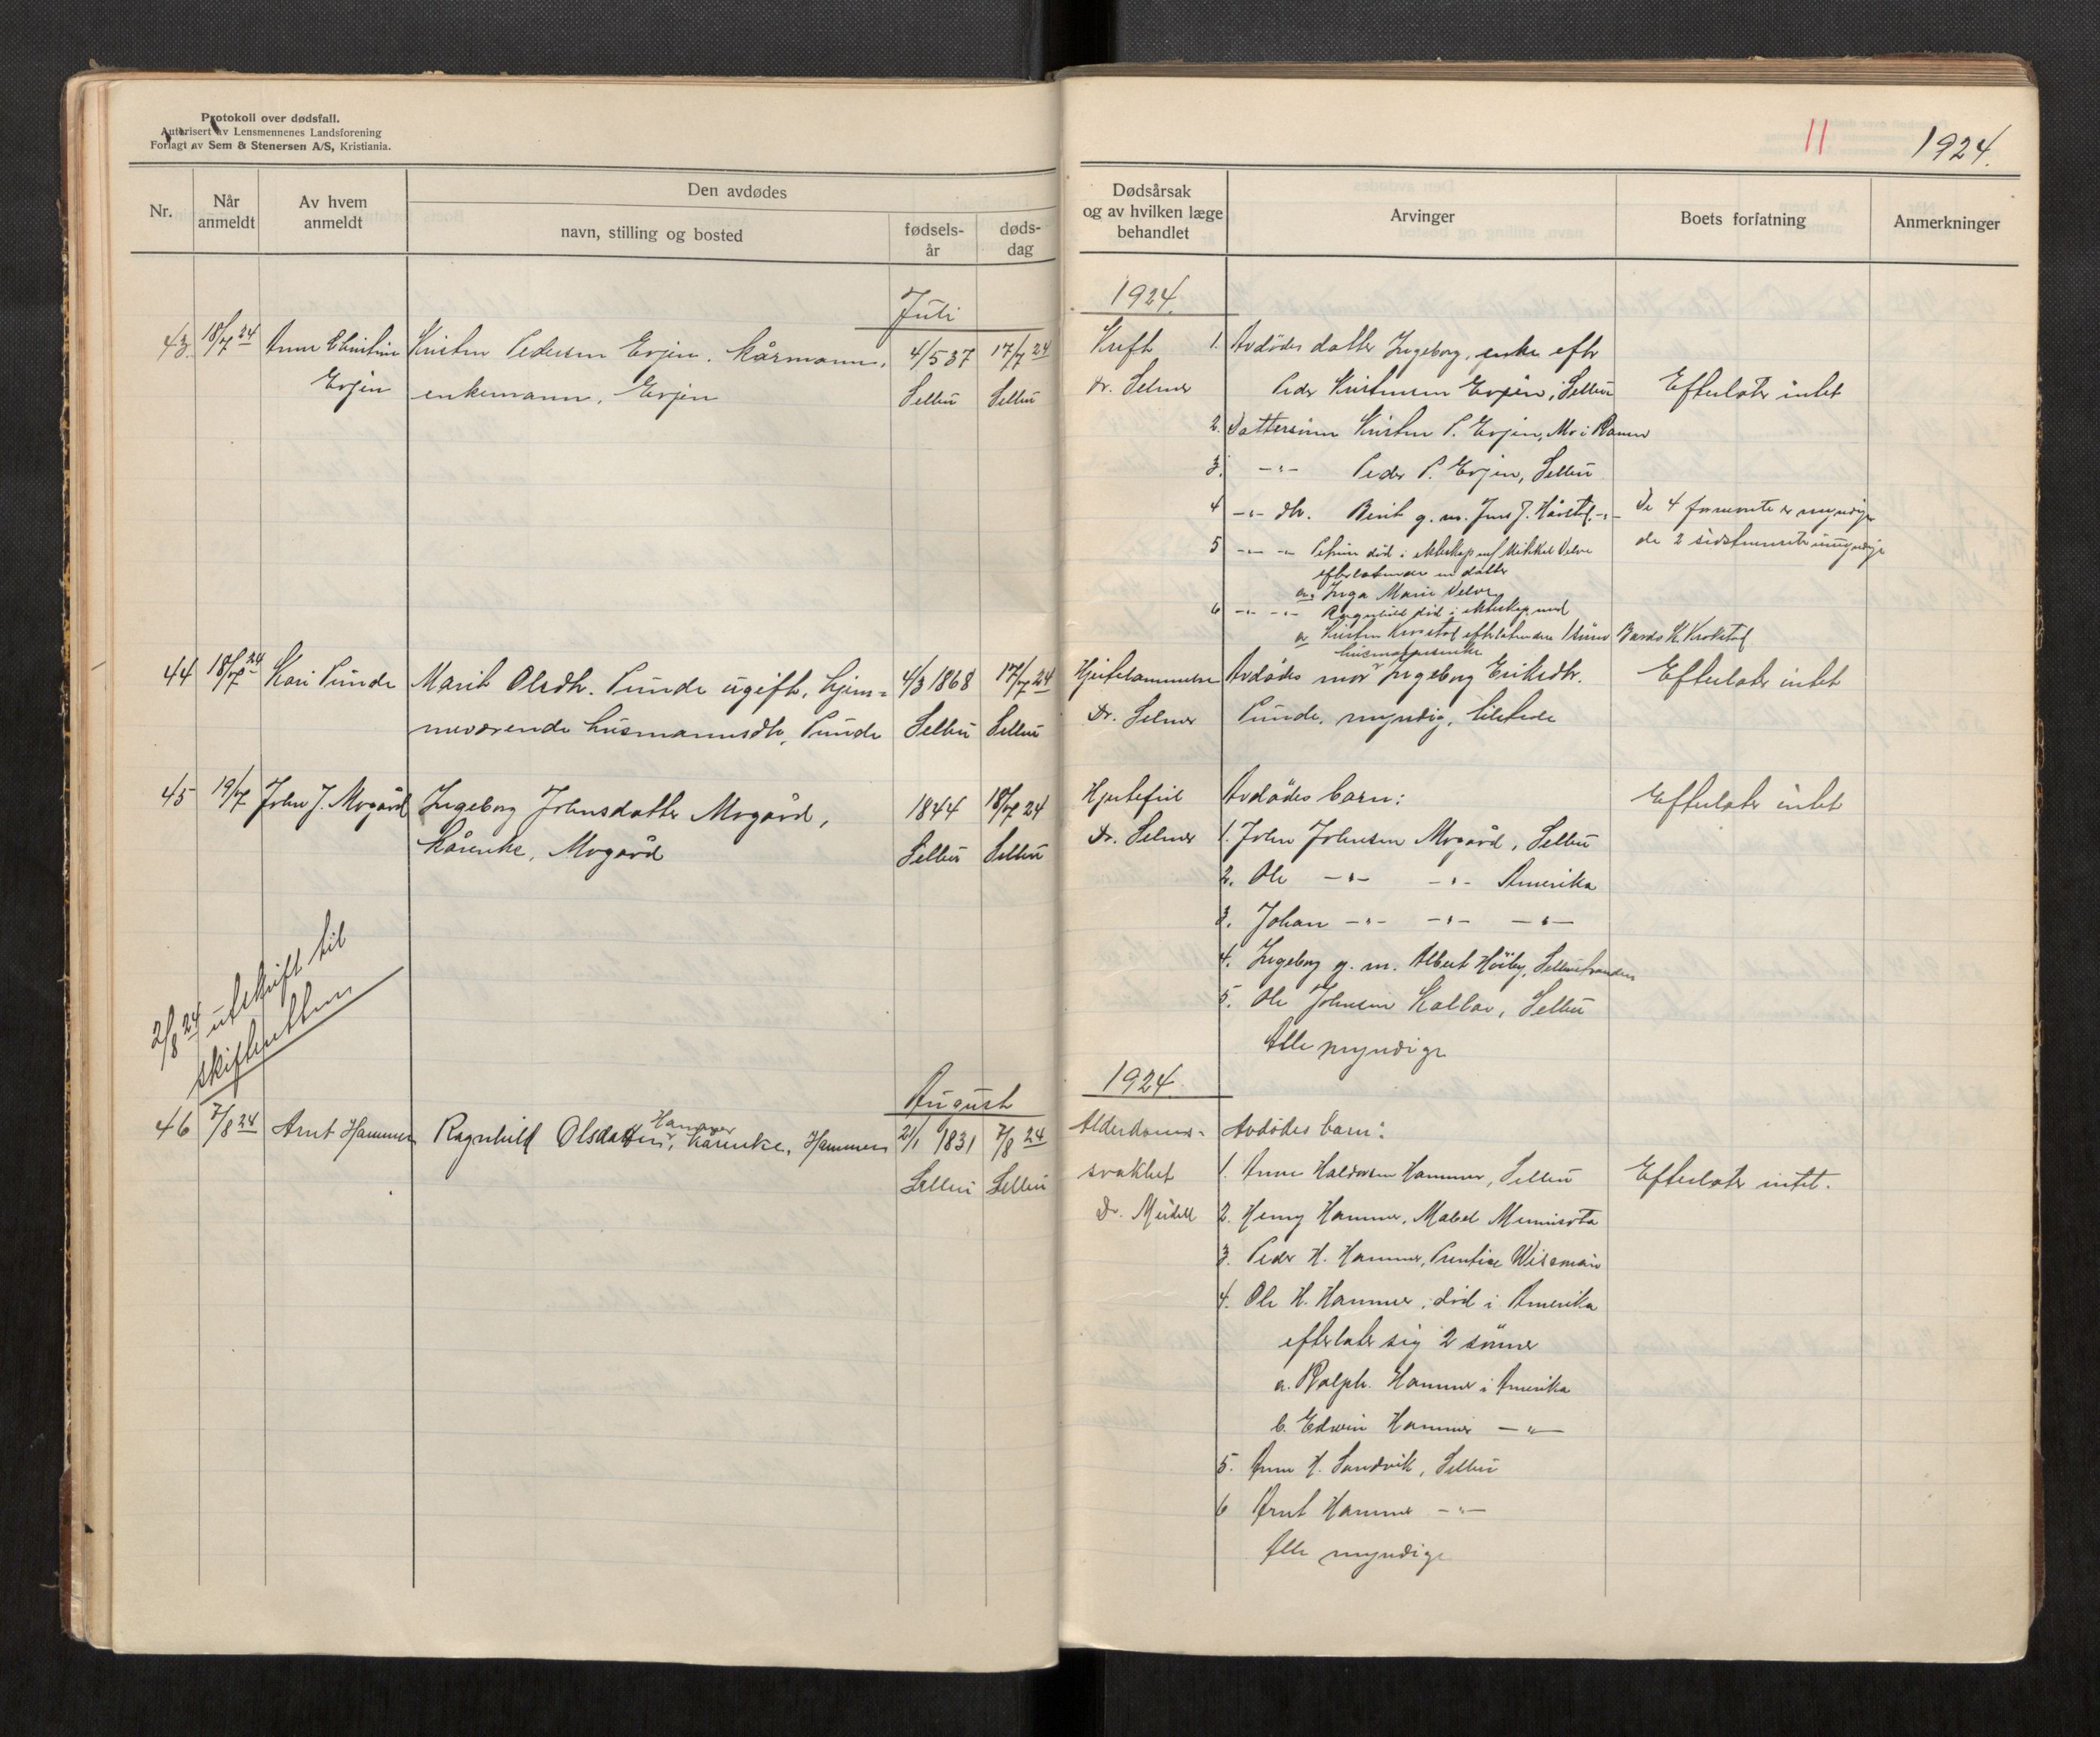 Protokoll over dødsfall.
Autorisert av Lensmennenes Landsforening
Forlagt av Sem & Stenersen A/S, Kristiania.
Nr.
Når anmeldt
Av hvem anmeldt
Den avdødes
navn, stilling og bosted
fødsels-år
døds-dag
Juli
43. 18/7 24 Anne Christine Kristen Pedersen Evjen. kårmann, 4/5 37 17/7 24
Evjen enkemann, Evjen Selbu Selbu
44 18/7 24 Kari Punde Marit Olsdtr. Punde ugift, hjem= 4/3 1868 17/7 24
meværende husmannsdtr, Punde Selbu Selbu
45 19/7 John J. Mogård Ingeborg Johnsdatter Mogård, 1844 18/7 24
Kårenke, Mogård Selbu Selbu
2/8 24 utskrift til
skifteretten
August
46 7/8 24 Arnt Hammer Ragnhild Olsdatter Hammer, kårenke, Hammer 21/1 1831 7/8 24
Selbu Selbu
11 1924.
Dødsårsak
og av hvilken læge
behandlet
Arvinger
Boets forfatning
Anmerkninger
1924.
Kreft 1. Avdødes datter Ingeborg, enke eftr
Dr. Selmer Peder Kristensen Evjen, Selbu Efterlater intet
2. Dattersønn Kristen P. Evjen, Mo i Ranen
3. -"- Peder P. Evjen, Selbu
4 -"- dtr. Berit g. m. Jens J. Hårstad -"- De 4 førnevnte er myndige
5 -"- -"- Petrine død i ekteskap m/ Mikkel Velve de 2 sidstnevnte umyndige
efterlatende en datter
a. Inga Marie Velve
6 -"- -"- Ragnhild død i ekteskap med
a Kristen Krokstad efterlatende 1 sønn Bardo K. Krokstad
husmannsenke
Hjertelammelse Avdødes mor Ingeborg Eriksdtr. Efterlater intet
Dr. Selmer Punde, myndig, tilstede
Hjertefeil Avdødes barn: Efterlater intet
Dr. Selmer 1. John Johnsen Mogård, Selbu
2. Ole -"- -"- Amerika
3. Johan -"- -"- -"-
4. Ingeborg g. m. Albert Høiby, Selbustranden
5. Ole Johnsen Kalvåa, Selbu
Alle myndige
1924.
Alderdoms- Avdødes barn:
svakhet 1. Anne Haldorsen Hammer, Selbu Efterlater intet.
Dr. Meidell 2. Henry Hammer, Mabel Minnisota
3. Peder H. Hammer, Prentice Wisconsin
4. Ole H. Hammer, død i Amerika
efterlater sig 2 sønner
a. Ralph. Hammer i Amerika
b. Edwin Hammer -"-
5. Anne H. Sandvik, Selbu
6 Arnt Hammer -"-
Alle myndige